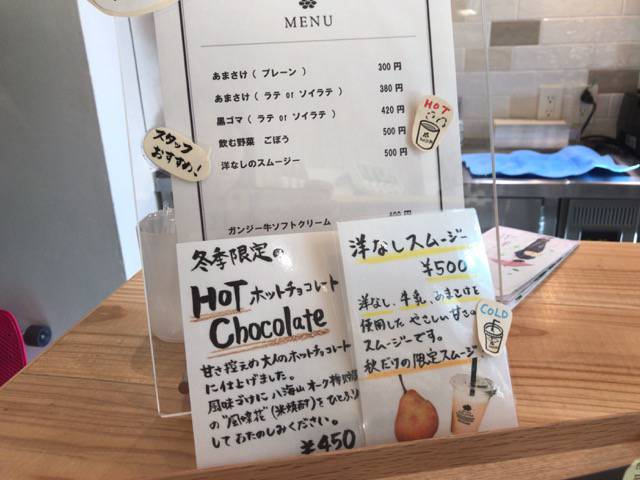 MENU
あまさけ（ プレーン ） 300 円
あまさけ（ ラテ or ソイラテ ） 380 円
黒ゴマ（ ラテ or ソイラテ ） 420 円
飲む野菜 ごぼう 500 円
洋なしのスムージー 500 円
ガンジー牛ソフトクリーム
HOT
スタッフ
おすすめ!
冬季限定の
HOT ホットチョコレート
Chocolate
甘さ控えめ大人のホットチョコレート
に仕上げました。
風味づけに八海山オーク樽貯蔵
の"風媒花"(米焼酎)をひとふり
してお楽しみください。
¥450
洋なしスムージー
¥500
洋なし、牛乳、あまさけを
使用したやさしい甘さの
スムージーです。
秋だけの限定スムージー
COLD